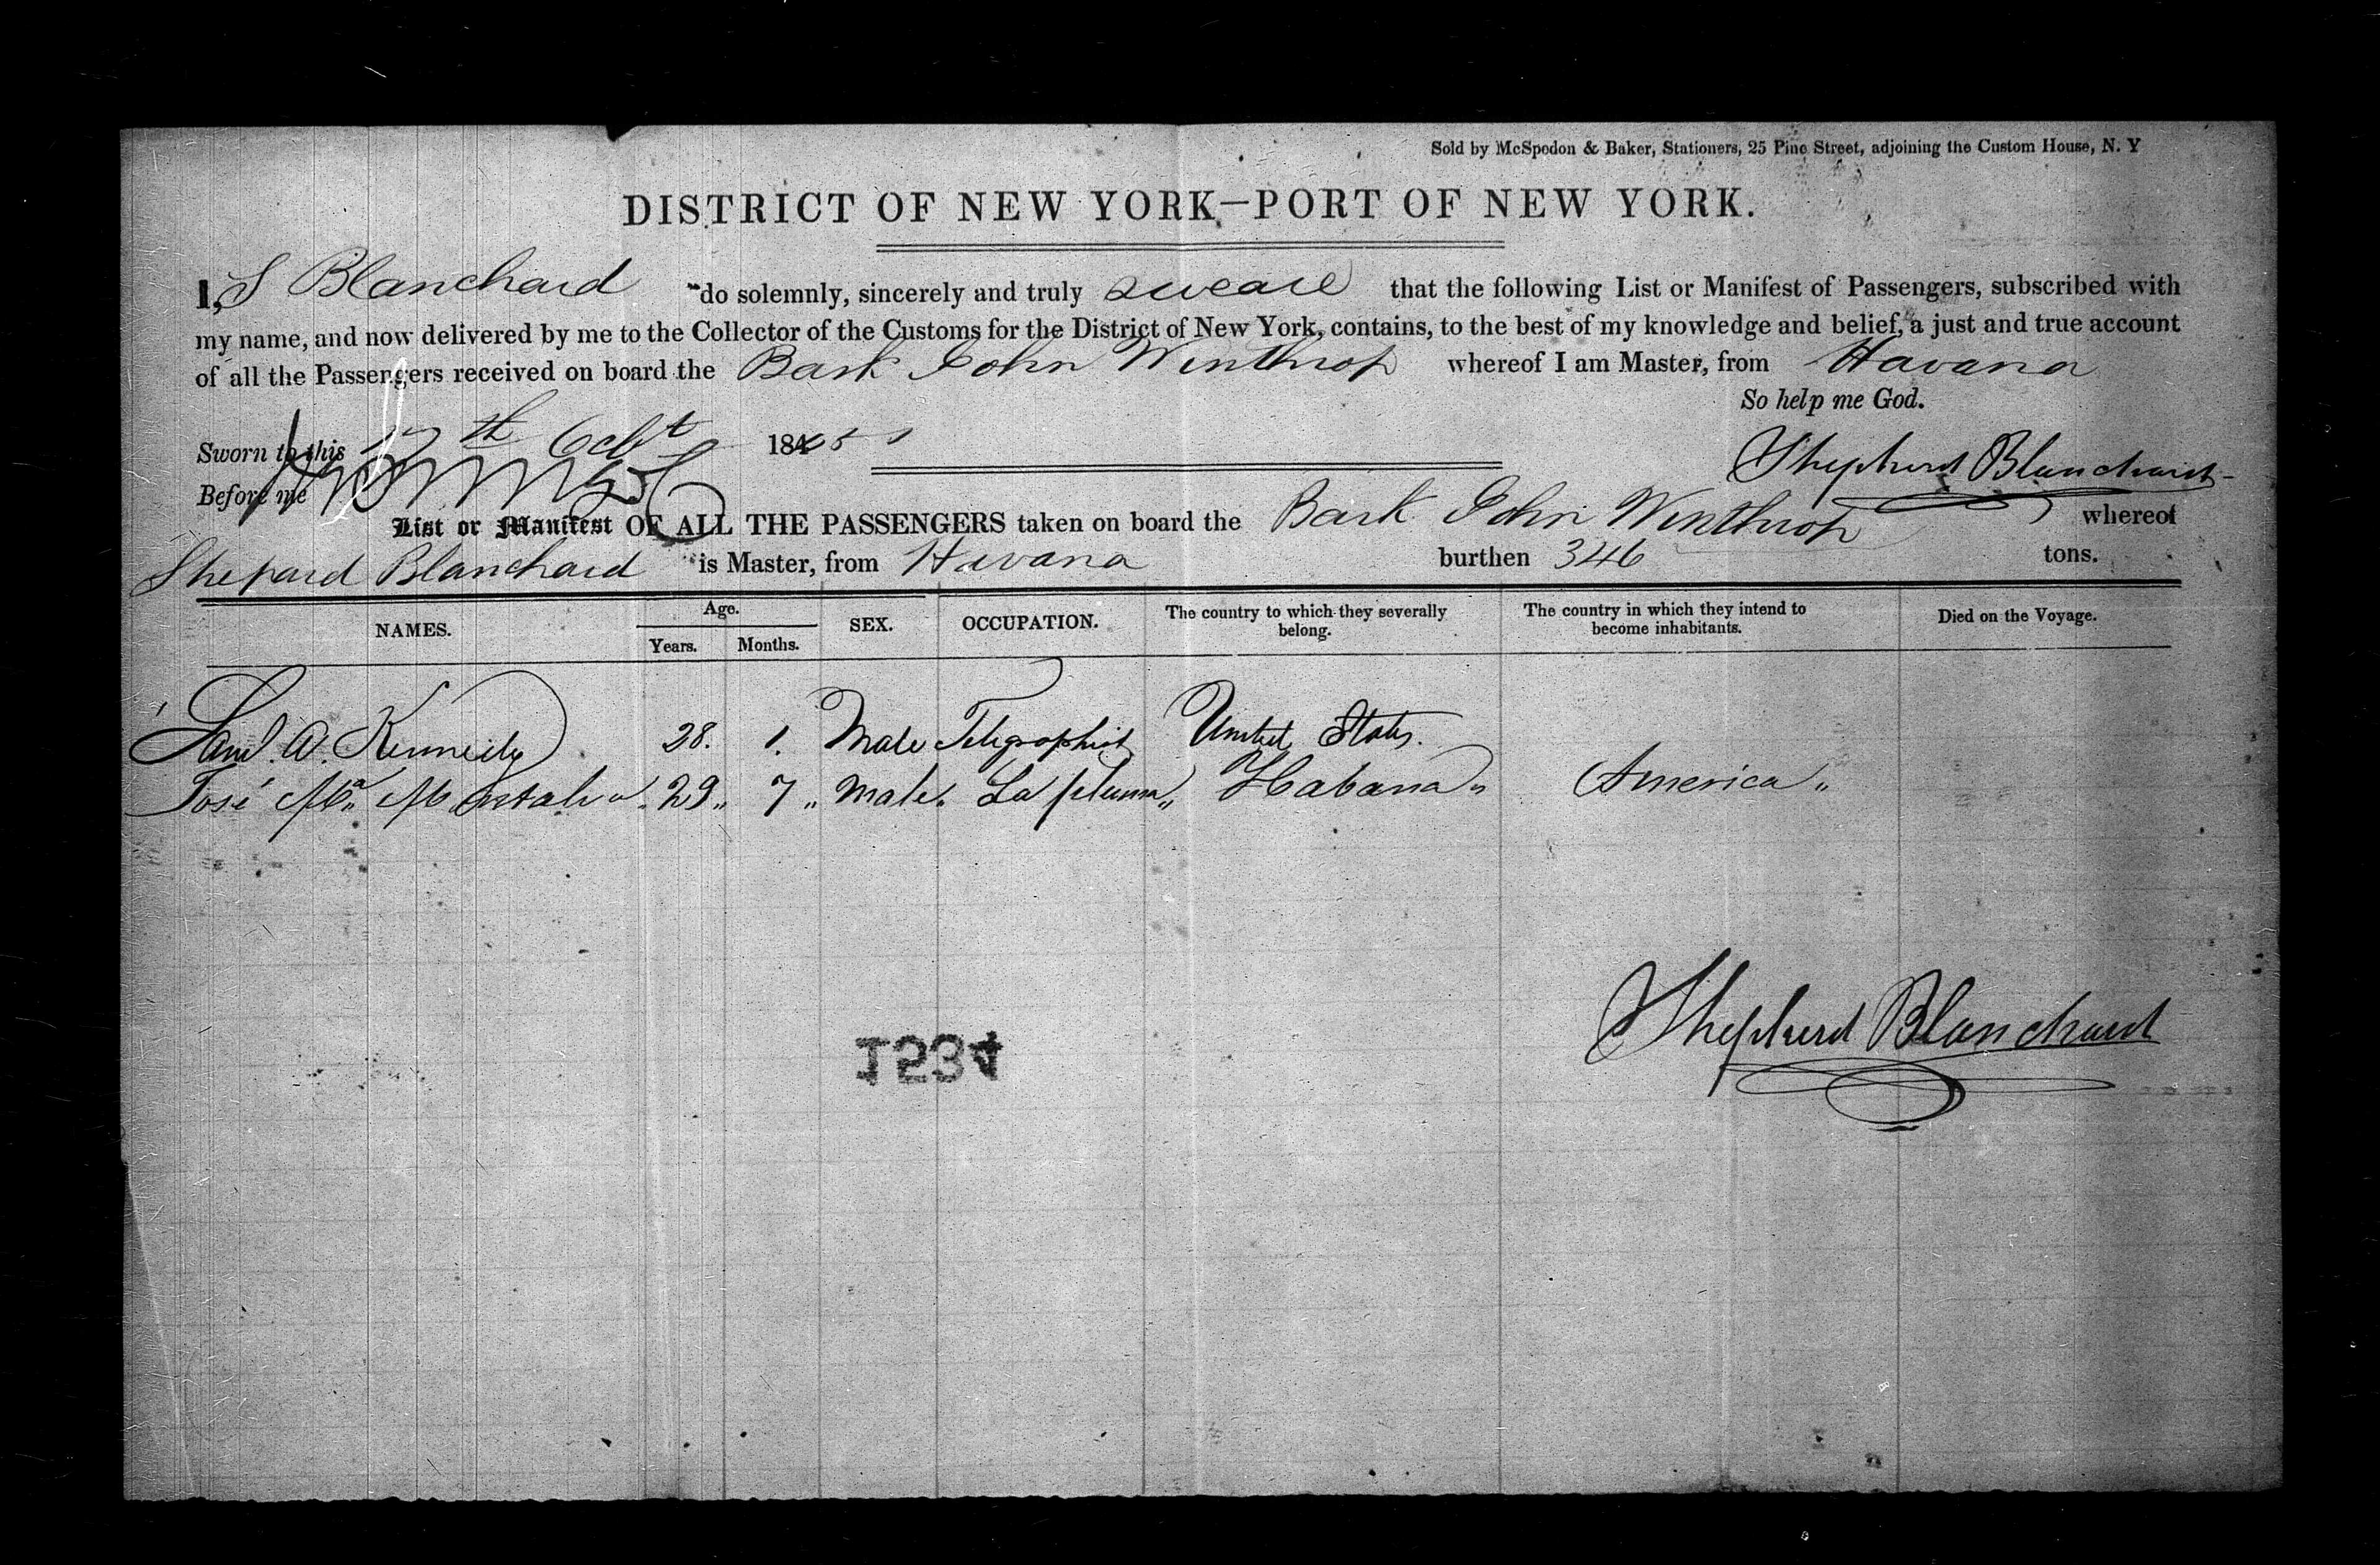 Sold by McSpedon & Baker, Stationers, 25 Pine Street, adjoining the Custom House, N. Y
DISTRICT OF NEW YORK—PORT OF NEW YORK.
I, S Blanchard do solemnly, sincerely and truly sweare that the following List or Manifest of Passengers, subscribed with
my name, and now delivered by me to the Collector of the Customs for the District of New York, contains, to the best of my knowledge and belief, a just and true account
of all the Passengers received on board the Bark John Winthrop whereof I am Master, from Havana
So help me God.
Sworn to this th Octbr 185
Shepherd Blanchard
Before me
List or Manifest OF ALL THE PASSENGERS taken on board the Bark John Winthrop whereof
Shepard Blanchard is Master, from Havana burthen 346 tons.
NAMES. Age. Years. Months. SEX. OCCUPATION. The country to which they severally belong. The country in which they intend to become inhabitants. Died on the Voyage.
Saml. A. Kennedy 28. 1. Male Telegraphist United States.
José Ma. Montalvo 29 7 Male. La pluma Habana America
Shepherd Blanchard
1534